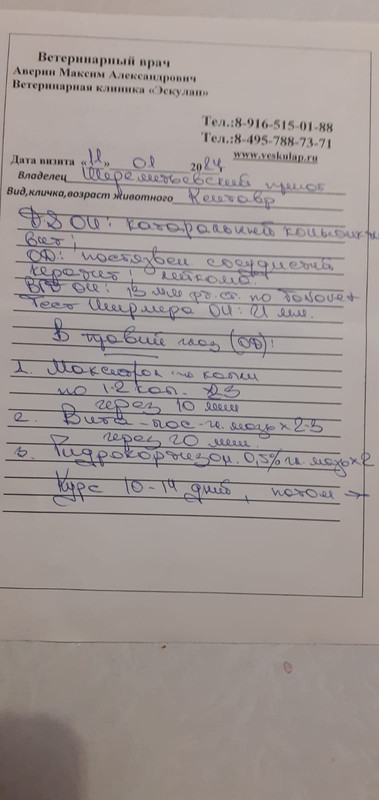 Ветеринарный врач
Аверин Максим Александрович
Ветеринарная клиника «Эскулап»
Тел.:8-916-515-01-88
Тел.:8-495-788-73-71
www.veskulap.ru
Дата визита «11» 01 2024
Владелец Шереметьевский приют
Вид,кличка,возраст животного Кентавр
DS OU: катаральный конъюнкти
вит!
OD: постязвен сосудистый
кератит! лейкома.
ВГД OU: 13 мм рт. ст. по Tonovet
Тест Ширмера OU: 21 мм.
В правый глаз (OD):
1. капли
по 1-2 кап. х2-3
через 10 мин
2. Вита-пос-гл. мазь х 2-3
через 20 мин.
3. Гидрокортизон. 0,5% гл. мазь х 2
Курс 10-14 дней, потом →